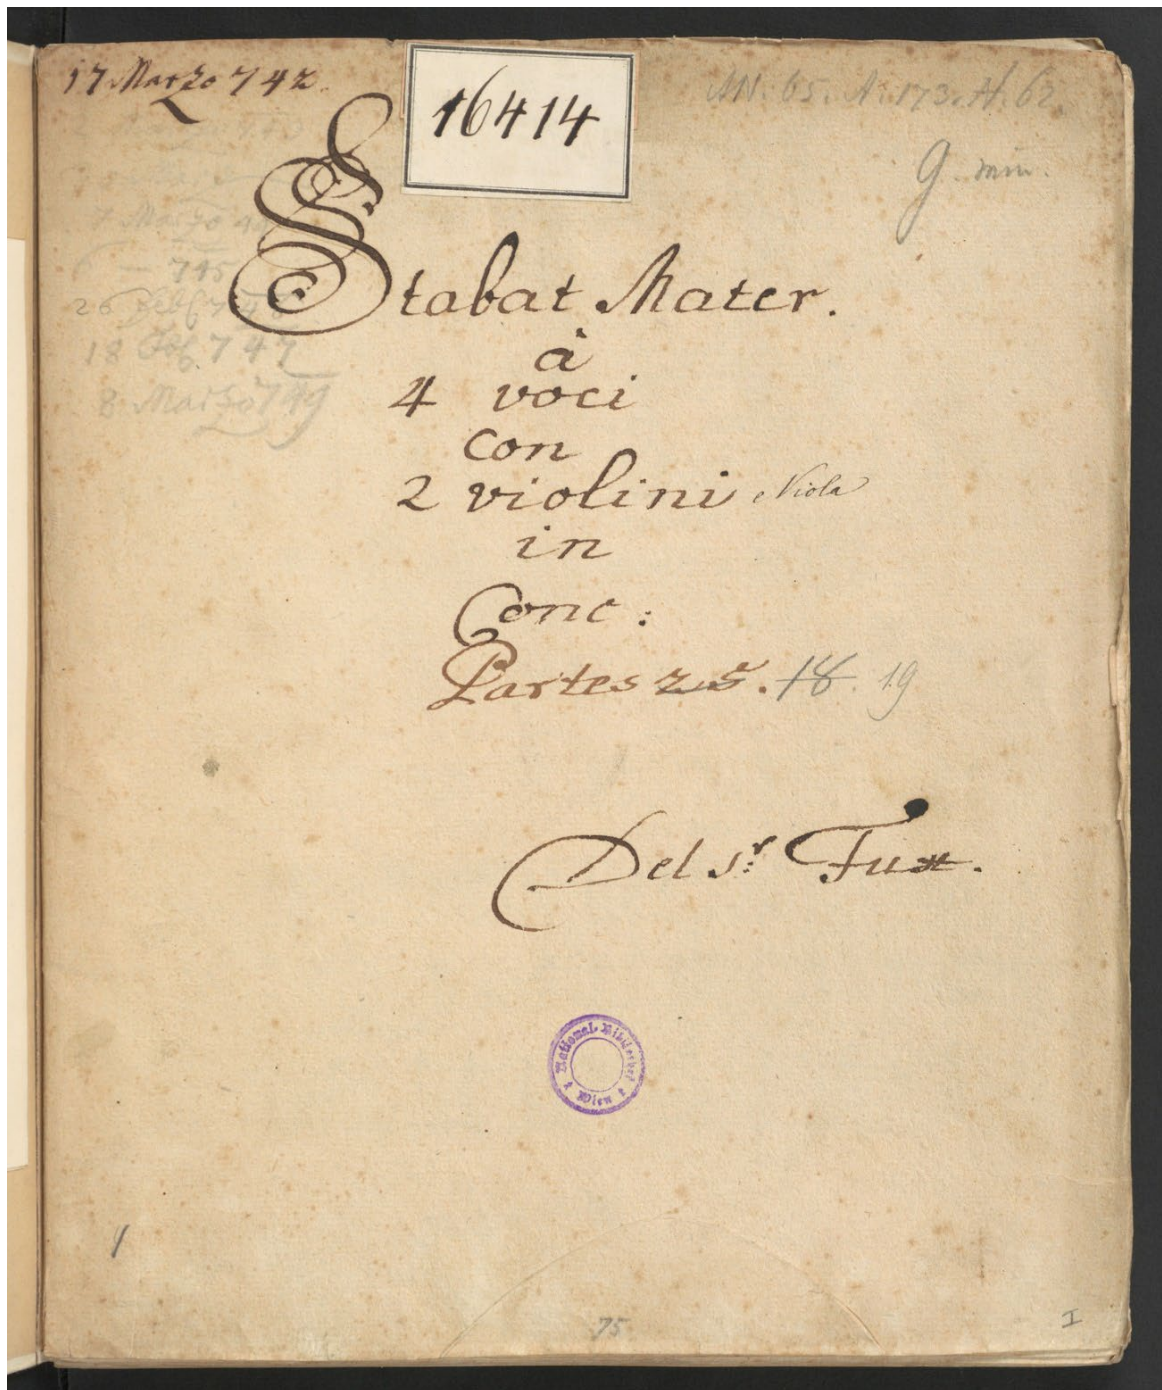 17 Marzo 742.
16414
AN. 65. A. 173. H. 62
G min.
7 Marzo
745
26 Feb.
18 Feb. 747
8 Marzo 749
Stabat Mater.
à
4 voci
con
2 violini e Viola
in
Conc:
Partes 25. 18. 19
Del Sr: Fux.
National-Bibliothek Wien
1
75
I